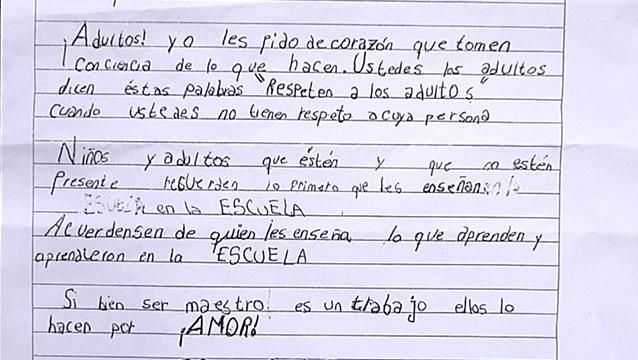 ¡Adultos! yo les pido de corazón que tomen
conciencia de lo que hacen. Ustedes los adultos
dicen éstas palabras "Respeten a los adultos"
cuando ustedes no tienen respeto a cuya persona
Niños y adultos que éstén y que no estén
Presente recuerden lo primero que les enseñan
en la ESCUELA
Acuerdensen de quien les enseña lo que aprenden y
aprendieron en la ESCUELA
Si bien ser maestro! es un trabajo ellos lo
hacen por ¡AMOR!